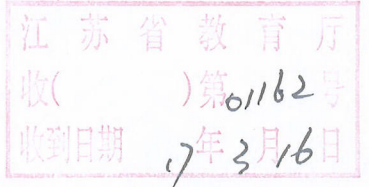 江苏省教育厅
收( )第01162号
收到日期 17年3月16日